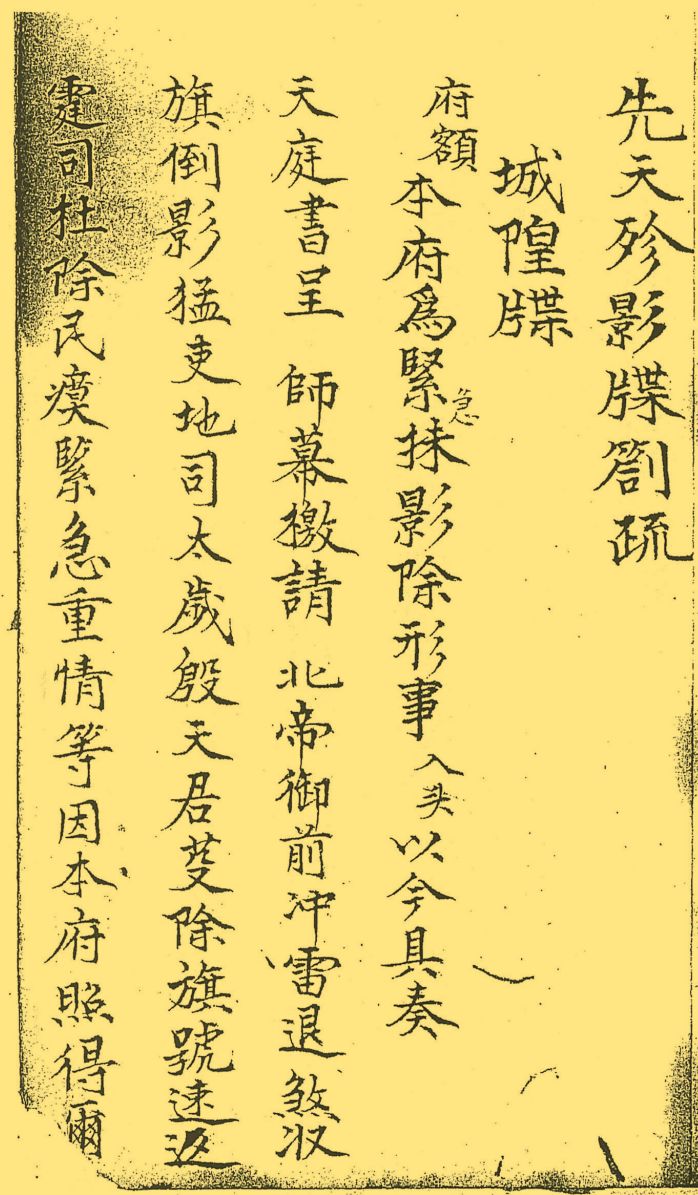 先天殄影牒劄疏
城隍牒
府額本府為緊急抹影除形事入头以今具奏
天庭書呈 師幕檄請 北帝御前冲雷退煞収
旗倒影猛吏地司太歲殷天君芟除旗號速返
霆司杜除民瘼緊急重情等因本府照得爾